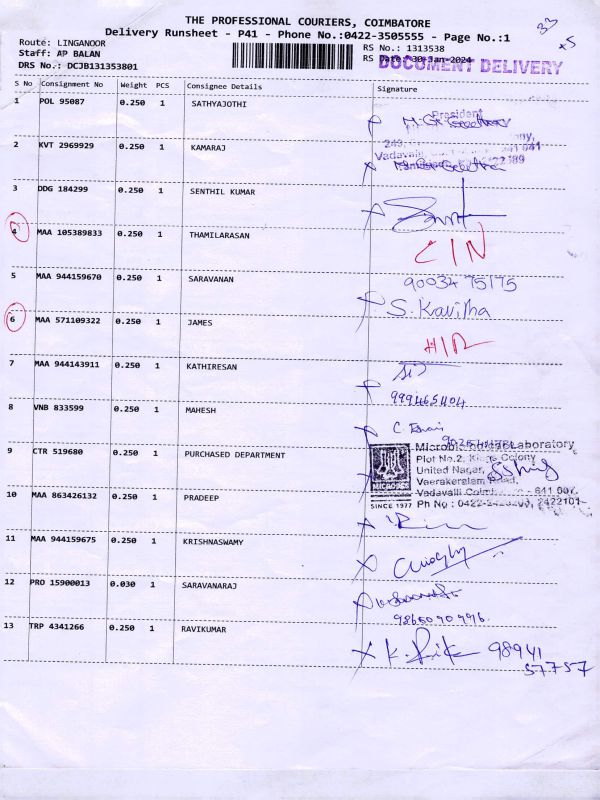 THE PROFESSIONAL COURIERS, COIMBATORE
Delivery Runsheet - P41 - Phone No.:0422-3505555 - Page No.:1
Route: LINGANOOR
Staff: AP BALAN
DRS No.: DCJB131353801
RS No.: 1313538
RS Date: 30-Jan-2024
DOCUMENT DELIVERY
33
x5
S No Consignment No Weight PCS Consignee Details Signature
1 POL 95087 0.250 1 SATHYAJOTHI
President
2 KVT 2969929 0.250 1 KAMARAJ
3 DDG 184299 0.250 1 SENTHIL KUMAR
4 MAA 105389833 0.250 1 THAMILARASAN
CIN
5 MAA 944159670 0.250 1 SARAVANAN
90034 75175
S. Kavitha
6 MAA 571109322 0.250 1 JAMES
7 MAA 944143911 0.250 1 KATHIRESAN
8 VNB 833599 0.250 1 MAHESH
9 CTR 519680 0.250 1 PURCHASED DEPARTMENT
Laboratory
Plot No.2, Colony
United Nagar,
Veerakeralam Road,
Vadavalli 641 007.
Ph No : 0422- 2422101
MICROTECH
SINCE 1977
10 MAA 863426132 0.250 1 PRADEEP
11 MAA 944159675 0.250 1 KRISHNASWAMY
12 PRO 15900013 0.030 1 SARAVANARAJ
13 TRP 4341266 0.250 1 RAVIKUMAR
98941
57757